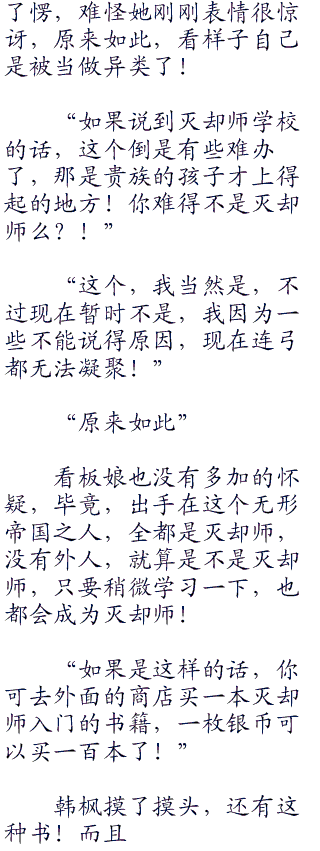 了愣，难怪她刚刚表情很惊
讶，原来如此，看样子自己
是被当做异类了！
“如果说到灭却师学校
的话，这个倒是有些难办
了，那是贵族的孩子才上得
起的地方！你难得不是灭却
师么？！”
“这个，我当然是，不
过现在暂时不是，我因为一
些不能说得原因，现在连弓
都无法凝聚！”
“原来如此”
看板娘也没有多加的怀
疑，毕竟，出手在这个无形
帝国之人，全都是灭却师，
没有外人，就算是不是灭却
师，只要稍微学习一下，也
都会成为灭却师！
“如果是这样的话，你
可去外面的商店买一本灭却
师入门的书籍，一枚银币可
以买一百本了！”
韩枫摸了摸头，还有这
种书！而且